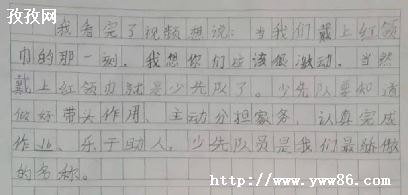 孜孜网
我看完了视频想说：当我们戴上红领
巾的那一刻，我想你们应该很激动。当然
戴上红领巾就是少先队了。少先队要知道
做好带头作用、主动分担家务、认真完成
作业、乐于助人。少先队员是我们最骄傲
的名称。
http://www.yww86.com